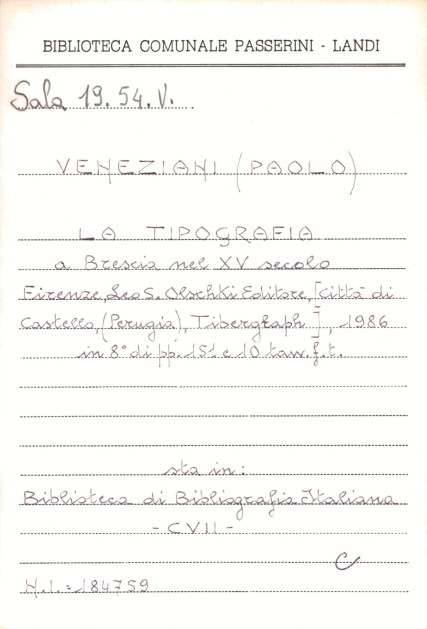 BIBLIOTECA COMUNALE PASSERINI - LANDI
Sala 19.54.V.
VENEZIANI (PAOLO)
LA TIPOGRAFIA
a Brescia nel XV secolo
Firenze, Leo S. Olschki Editore, [Città di
Castello, (Perugia), Tibergraph], 1986
in 8° di pp. 151 e 10 tav. f. t.
sta in:
Biblioteca di Bibliografia Italiana
- CVII -
C
N.I. = 184759